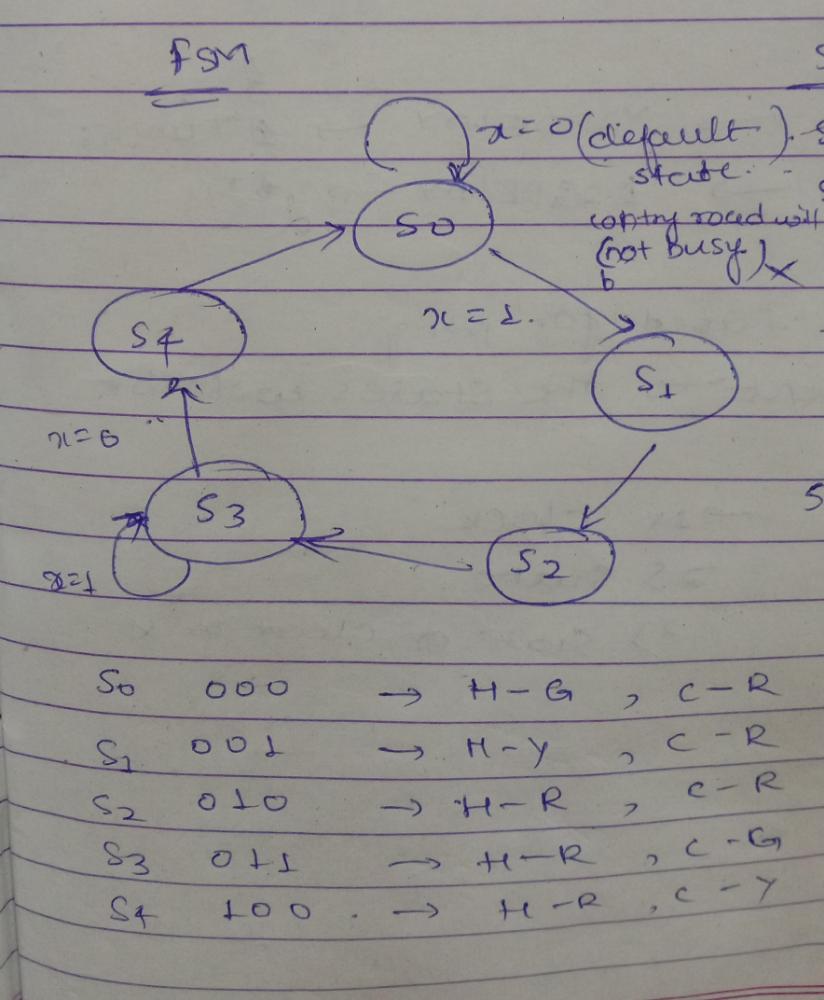 FSM
x=0 (default).
state.
contry road will
(not busy) x
b
S0
x=1.
S4
S1
x=0
S3
x=1
S2
S0 000 → H-G , C-R
S1 001 → H-Y , C-R
S2 010 → H-R , C-R
S3 011 → H-R , C-G
S4 100 . → H-R , C-Y